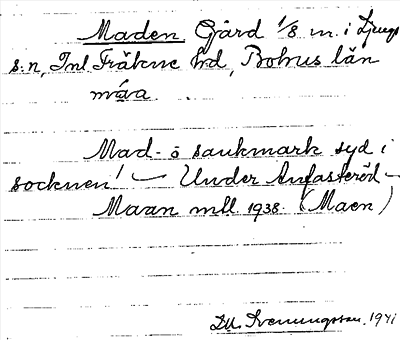 Maden Gård 1/8 m. i Ljungs
s:n, Inl. Fräkne hd, Bohus län
måva
Mad- o sankmark syd i
socknen! — Under Anfasteröd —
Maan mll 1938. (Maen)
D.U. Svenungsson, 1941